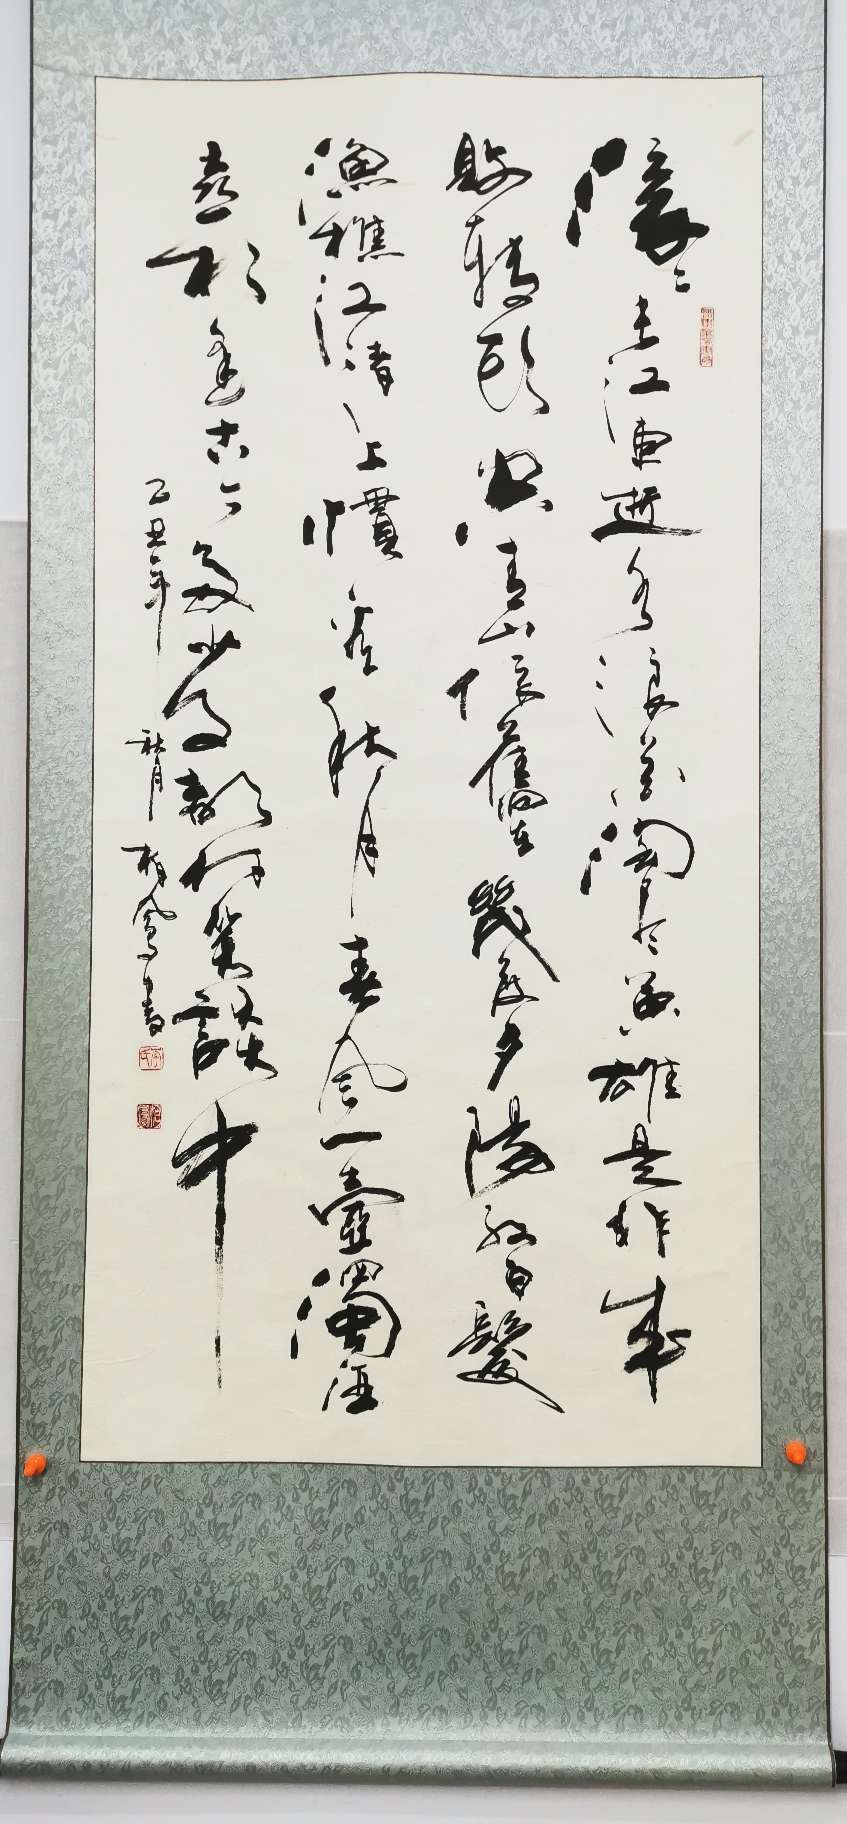 滚滚长江东逝水浪花淘尽英雄是非成
败转头空青山依旧在几度夕阳红白髮
渔樵江渚上惯看秋月春风一壶浊酒
喜相逢古今多少事都付笑谈中
丑年
秋月
书